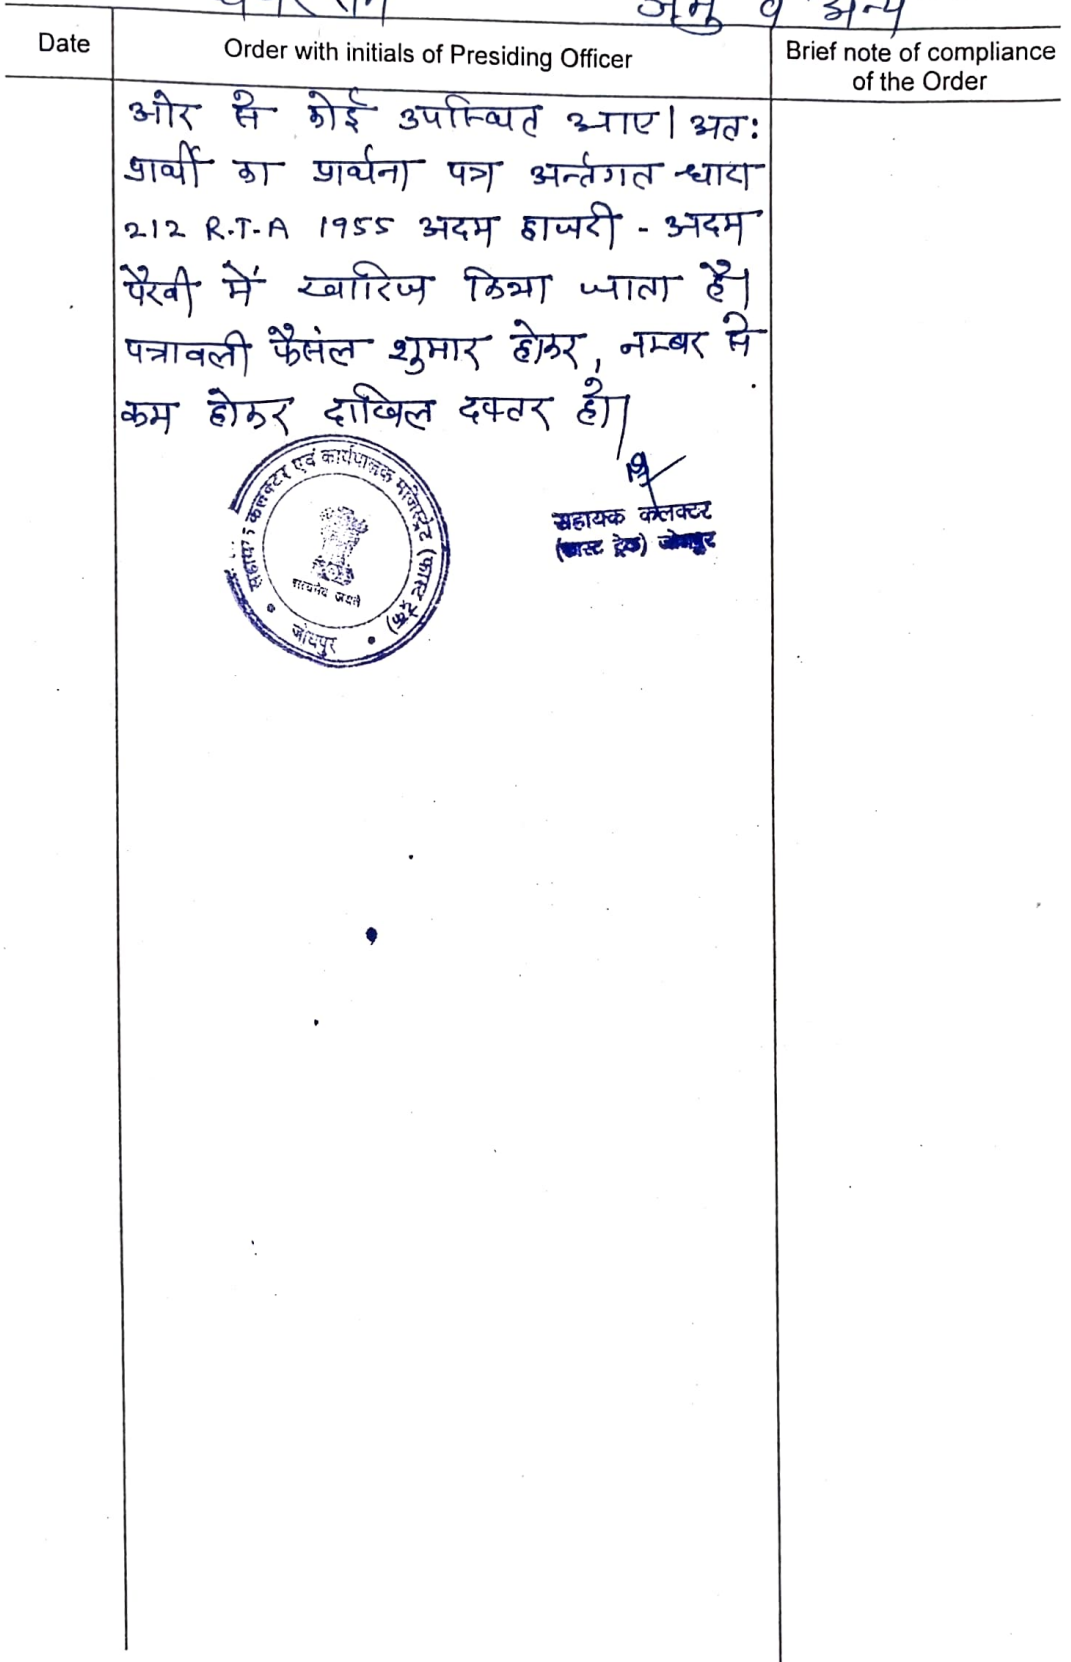 व अन्य
Date
Order with initials of Presiding Officer
Brief note of compliance
of the Order
ओर से कोई उपस्थित आए। अतः
प्रार्थी का प्रार्थना पत्र अर्न्तगत धारा
212 R.T.A 1955 अदम हाजरी - अदम
पैरवी में खारिज किया जाता है।
पत्रावली फैसंल शुमार होकर, नम्बर से
कम होकर दाखिल दफ्तर हो।
सहायक कलक्टर
(फास्ट ट्रेक) जोधपुर
सहायक कलक्टर एवं कार्यपालक मजिस्ट्रेट (फास्ट ट्रेक)
सत्यमेव जयते
जोधपुर